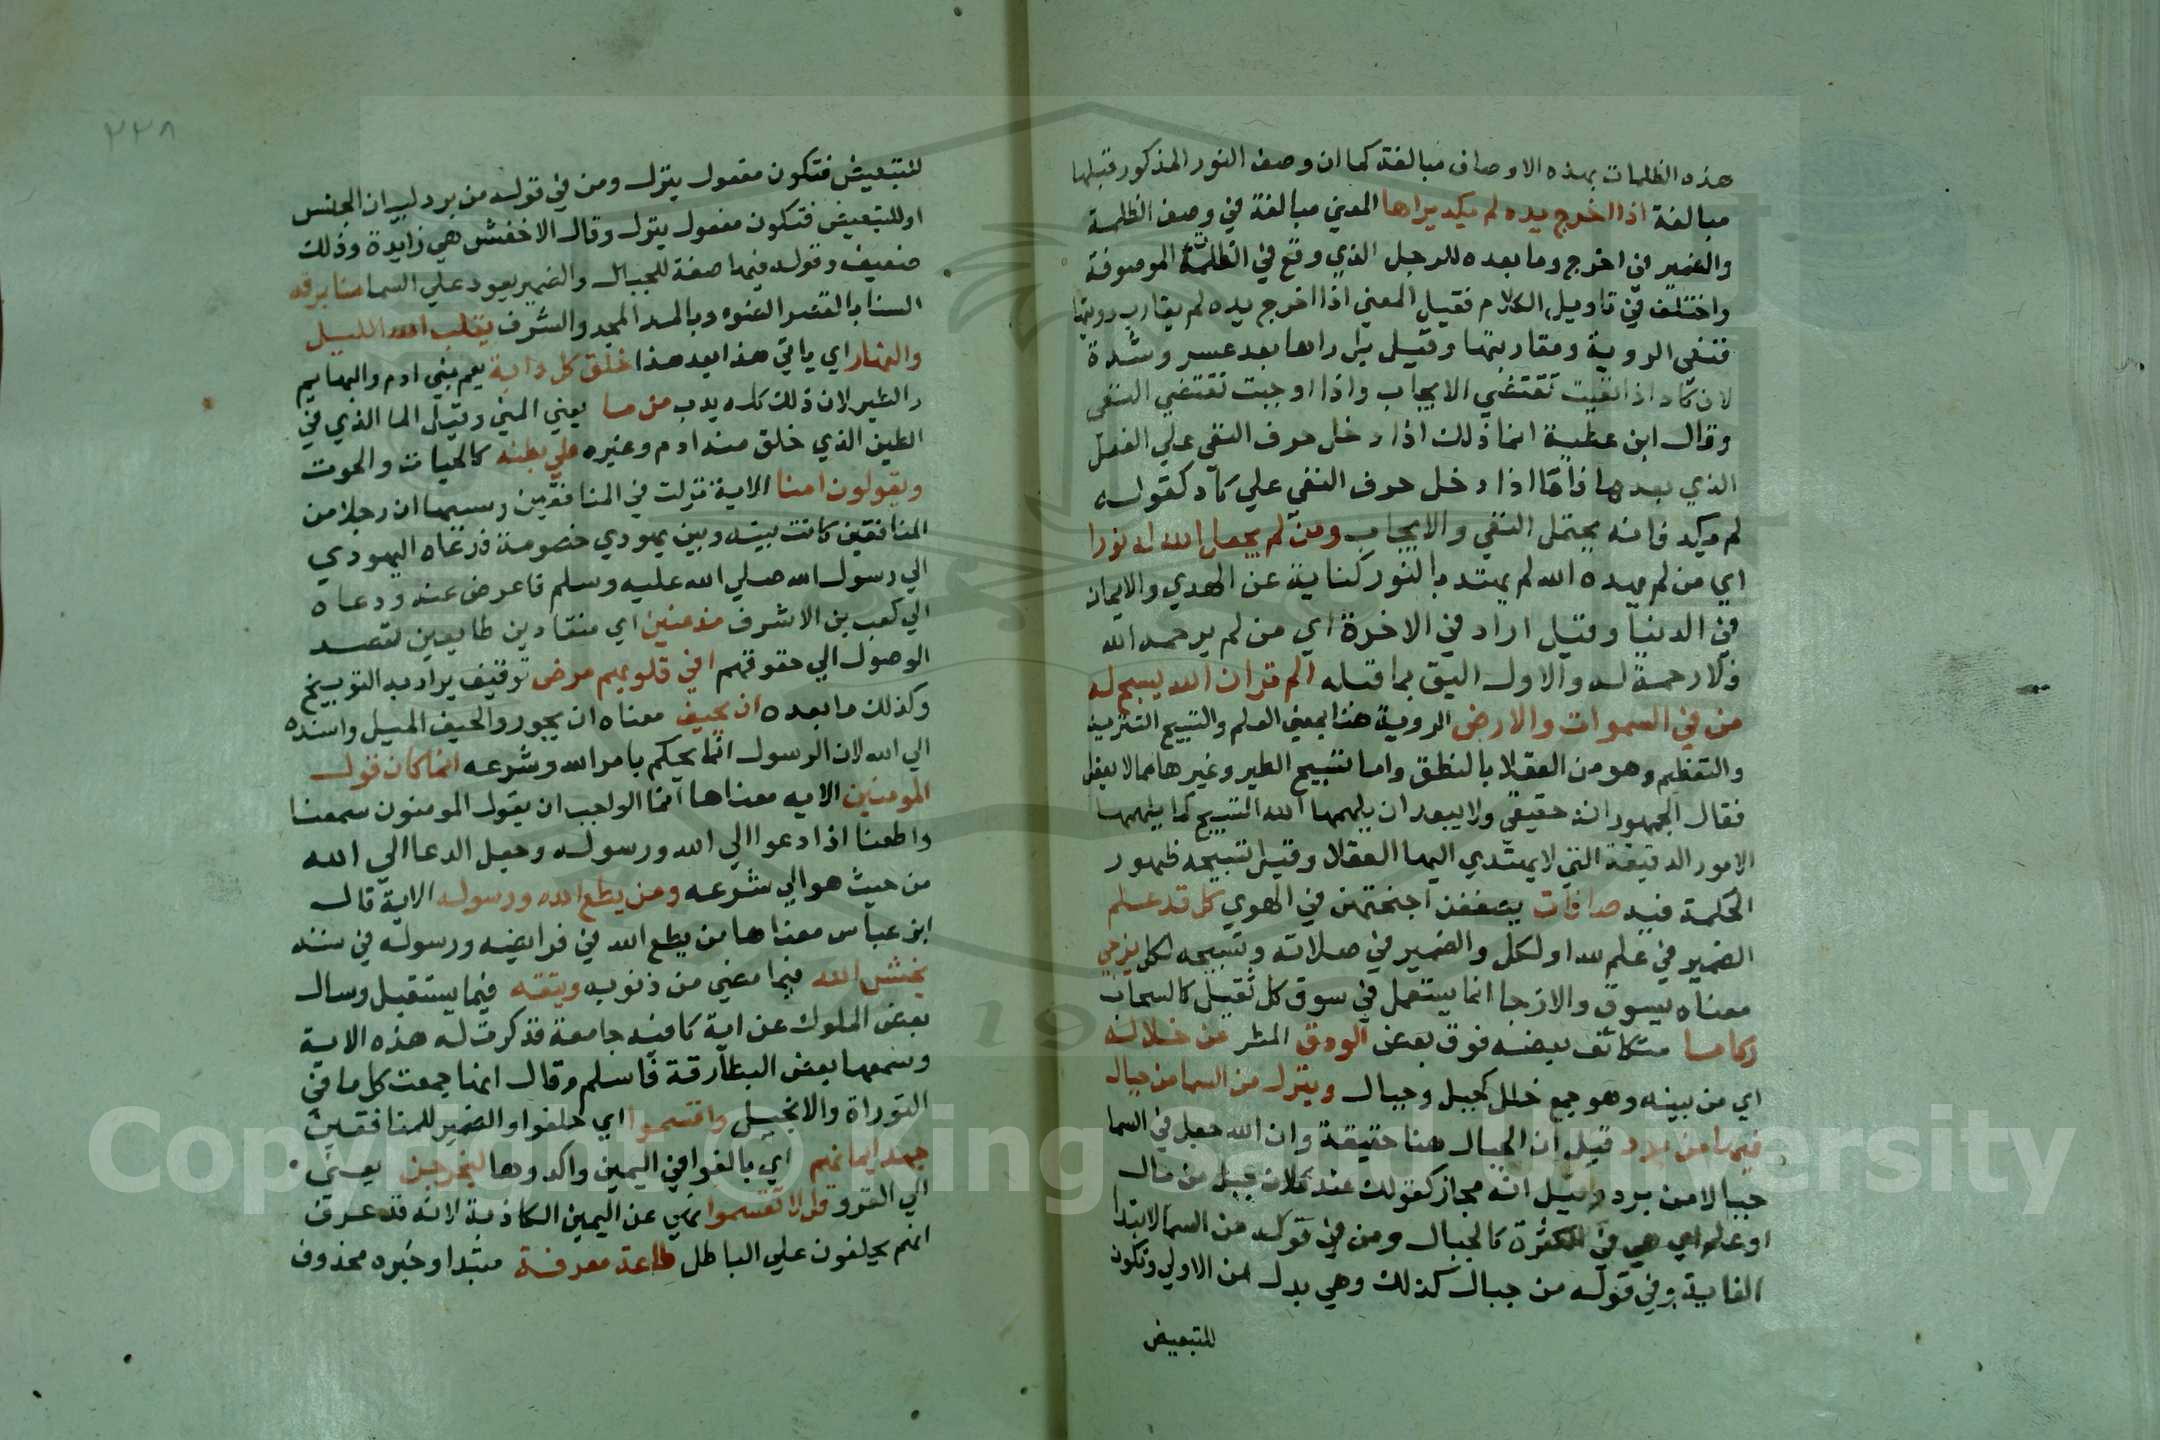 هذه الظلمات بهذه الاوصاف مبالغة كما ان وصف النور المذكور قبلها
مبالغة اذا اخرج يده لم يكد يراها المعني مبالغة في وصف الظلمة
والضمير في اخرج وما بعده للرجل الذي وقع في الظلمة الموصوفة
واختلف في تاويل الكلام فقيل المعني اذا اخرج يده لم يقارب رويتها
فنفي الروية ومقاربتها وقيل بل راها بعد عسر وشدة
لان كاد اذا نفيت تقتضي الايجاب واذا اوجبت تقتضي النفي
وقال ابن عطية انما ذلك اذا دخل حرف النفي علي الفعل
الذي بعدها فاما اذا دخل حرف النفي علي كاد كقوله
لم يكد فانه يحتمل النفي والايجاب ومن لم يجعل الله له نورا
اي من لم يهده الله لم يهتد بالنور كناية عن الهدي والايمان
في الدنيا وقيل اراد في الاخرة اي من لم يرحمه الله
فلا رحمة له والاول اليق بما قبله الم تر ان الله يسبح له
من في السموات والارض الروية هنا بمعني العلم والتسبيح التنزيه
والتعظيم وهو من العقلا بالنطق واما تسبيح الطير وغيرها مما لا يعقل
فقال الجمهور انه حقيقي ولا يبعد ان يلهمها الله التسبيح كما يلهمها
الامور الدقيقة التي لا يهتدي اليها العقلا وقيل تسبيحه ظهور
الحكمة فيه صافات يصففن اجنحتهن في الهوي كل قد علم
الضمير في علم لله او لكل والضمير في صلاته وتسبيحه لكل يزجي
معناه يسوق والازجا انما يستعمل في سوق كل ثقيل كالسحاب
ركاما متكاثف بعضه فوق بعض الودق المطر من خلاله
اي من بينه وهو جمع خلل كجبل وجبال وينزل من السما من جبال
فيها من برد قيل ان الجبال هنا حقيقة وان الله جعل في السما
جبالا من برد وقيل انه مجاز كقولك عند فلان جبل من مال
او علم اي هي في الكثرة كالجبال ومن في قوله من السما لابتدا
الغاية وفي قوله من جبال كذلك وهي بدل من الاولي وتكون
للتبعيض
٢٢٨
للتبعيض فتكون مفعول ينزل ومن في قوله من برد لبيان الجنس
او للتبعيض فتكون مفعول ينزل وقال الاخفش هي زايدة وذلك
ضعيف وقوله فيها صفة للجبال والضمير يعود علي السما سنا برقه
السنا بالقصر الضوء وبالمد المجد والشرف يقلب الله الليل
والنهار اي ياتي هذا بعد هذا خلق كل دابة يعم بني ادم والبهايم
والطير لان ذلك كله يدب من ما يعني المني وقيل الما الذي في
الطين الذي خلق منه ادم وغيره علي بطنه كالحيات والحوت
ويقولون امنا الاية نزلت في المنافقين وسببها ان رجلا من
المنافقين كانت بينه وبين يهودي خصومة فدعاه اليهودي
الي رسول الله صلي الله عليه وسلم فاعرض عنه ودعاه
الي كعب بن الاشرف مذعنين اي منقادين طايعين لقصد
الوصول الي حقوقهم افي قلوبهم مرض توقيف يراد به التوبيخ
وكذلك ما بعده ان يحيف معناه ان يجور والحيف الميل واسنده
الي الله لان الرسول انما يحكم بامر الله وشرعه انما كان قول
المومنين الايه معناها انما الواجب ان يقول المومنون سمعنا
واطعنا اذا دعوا الي الله ورسوله وجعل الدعا الي الله
من حيث هو الي شرعه ومن يطع الله ورسوله الاية قال
ابن عباس معناها من يطع الله في فرايضه ورسوله في سننه
يخش الله فيما مضي من ذنوبه ويتقه فيما يستقبل وسال
بعض الملوك عن اية كافيه جامعة فذكرت له هذه الاية
وسمعها بعض البطارقة فاسلم وقال انها جمعت كل ما في
التوراة والانجيل واقسموا اي حلفوا والضمير للمنافقين
جهد ايمانهم اي بالغوا في اليمين واكدوها ليخرجن يعني
الي الغزو قل لا تقسموا نهي عن اليمين الكاذبة لانه قد عرف
انهم يحلفون علي الباطل طاعة معروفة مبتدا وخبره محذوف
Copyright © King Saud University